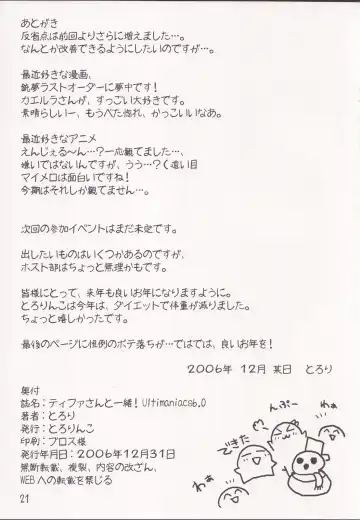 あとがき
反省点は前回よりさらに増えました…。
なんとか改善できるようにしたいのですが…。
最近好きな漫画、
銃夢ラストオーダーに夢中です!
カエルラさんが、すっごい大好きです。
素晴らしいー、もうべた惚れ、かっこいいなあ。
最近好きなアニメ
えんじぇる〜ん…?一応観てました…、
嫌いではないんですが、うう…?(遠い目
マイメロは面白いですね!
今期はそれしか観てません…。
次回の参加イベントはまだ未定です。
出したいものはいくつかあるのですが、
ホスト部はちょっと無理かもです。
皆様にとって、来年も良いお年になりますように。
とろりんこは今年は、ダイエットで体重が減りました。
ちょっと嬉しかったです。
最後のページに恒例のボテ落ちが…ではでは、良いお年を!
2006年 12月 某日 とろり
奥付
誌名:ティファさんと一緒! Ultimaniacs6.0
著者:とろり
発行:とろりんこ
印刷:プロス様
発行年月日:2006年12月31日
無断転載、複製、内容の改ざん、
WEBへの転載を禁じる
んぷー
できた
わぁ
わぁ
21